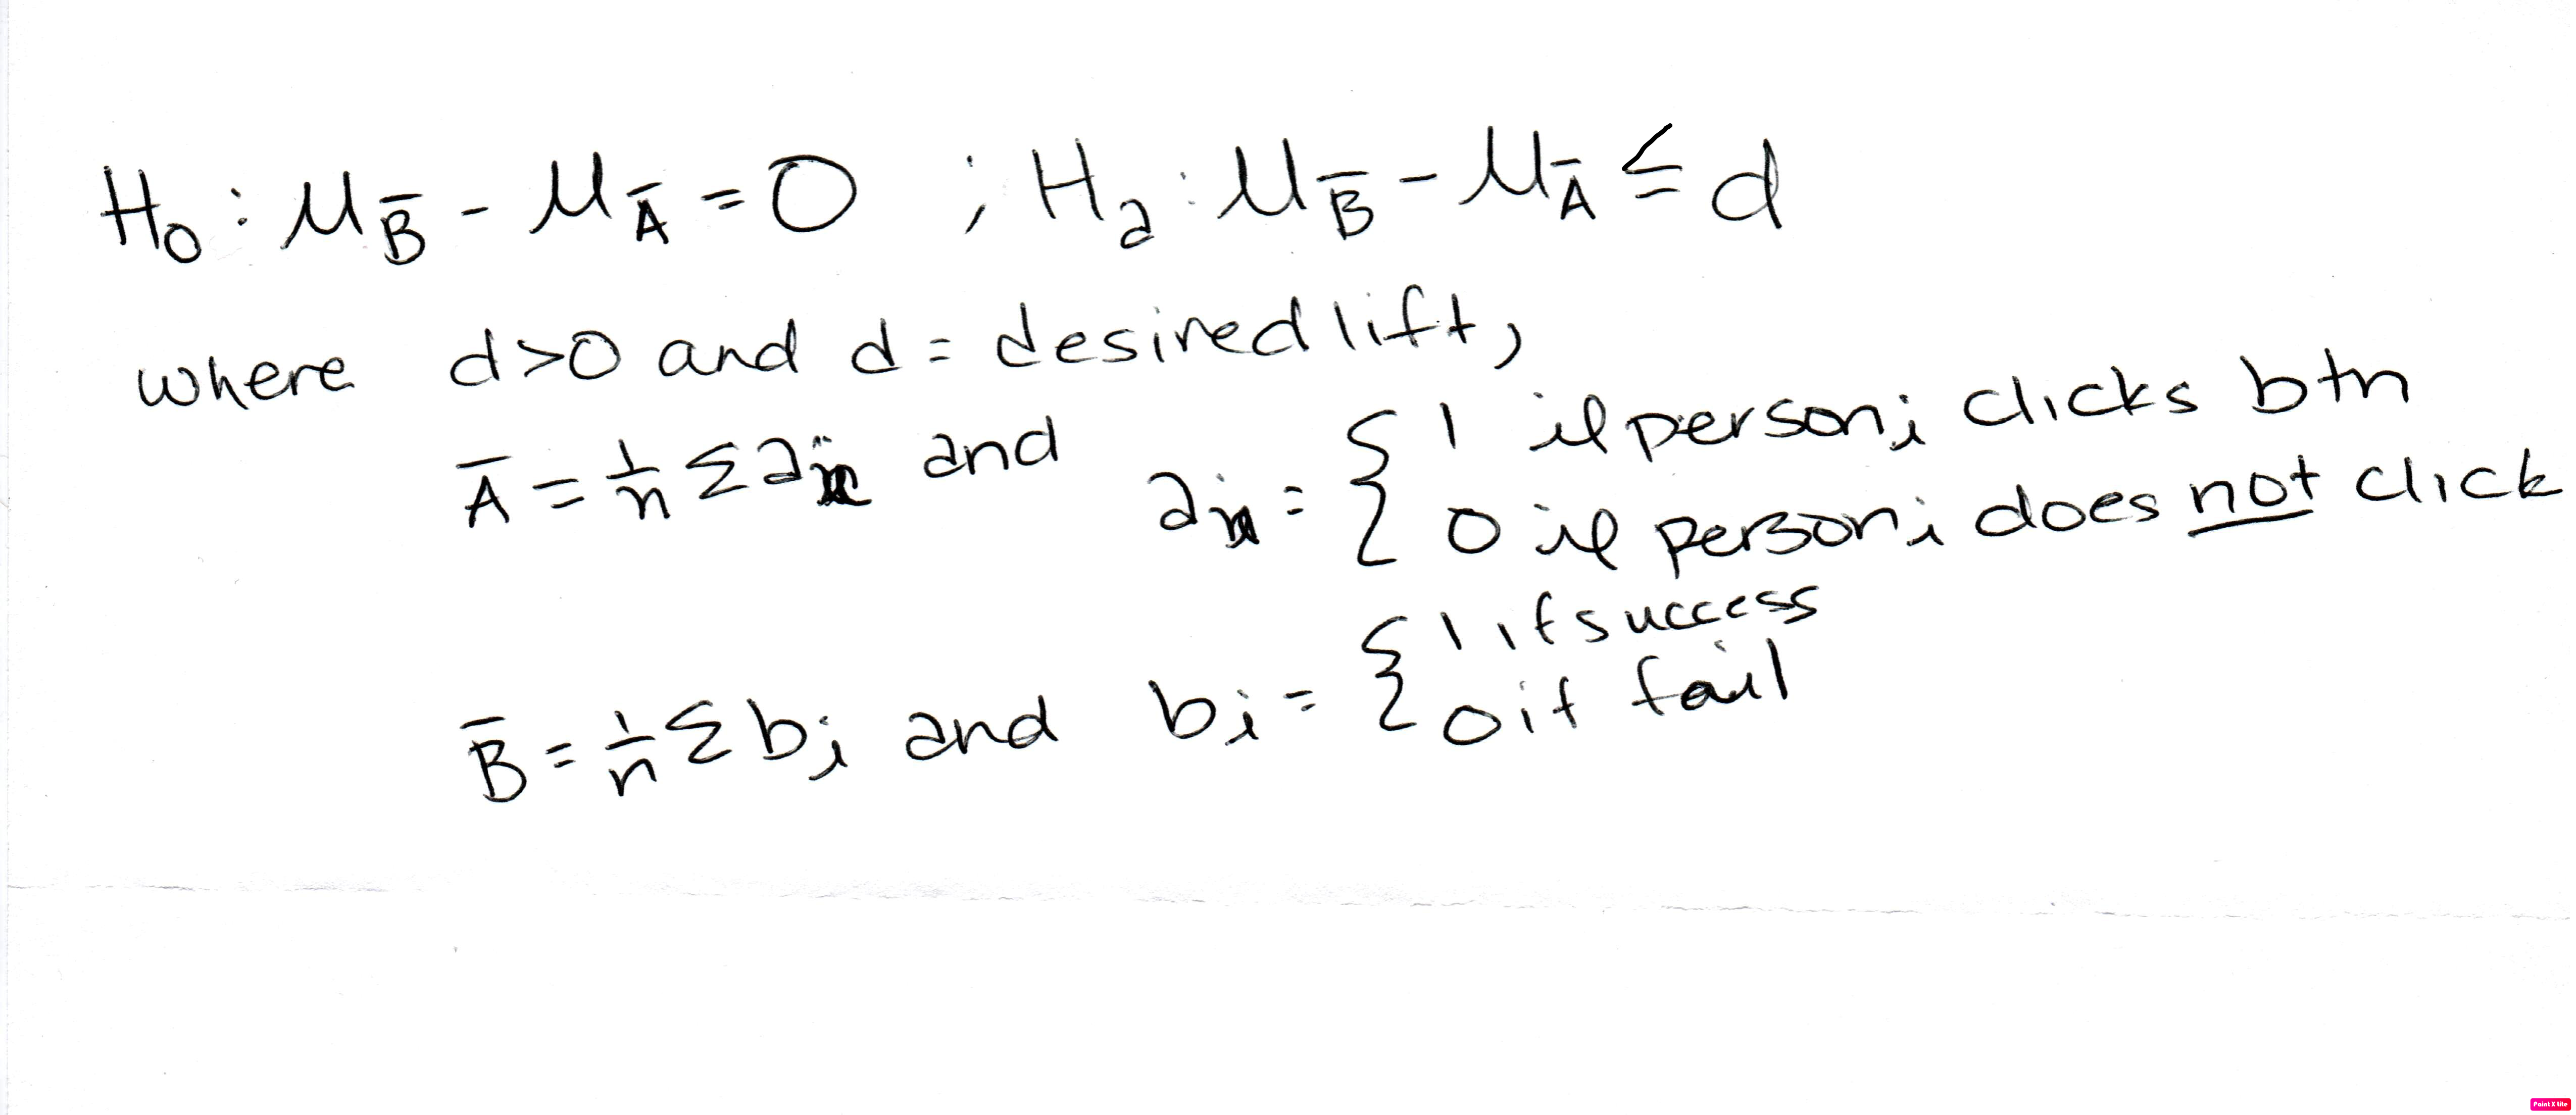 H₀ : μ_B̄ - μ_Ā = 0 ; Hₐ : μ_B̄ - μ_Ā ≤ d
where d>0 and d = desired lift,
Ā = 1/n Σ aᵢ and aᵢ = { 1 if personᵢ clicks btn
0 if personᵢ does not click
B̄ = 1/n Σ bᵢ and bᵢ = { 1 if success
0 if fail
Paint X Lite